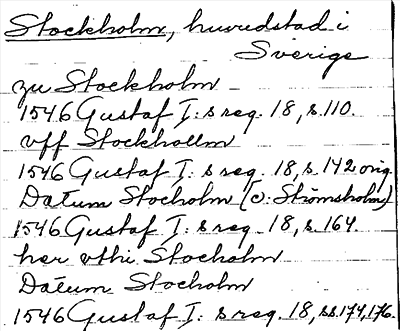 Stockholm, huvudstad i
Sverige
zu Stockholm
1546 Gustaf I:s reg. 18, s. 110.
vff Stockhollm
1546 Gustaf I:s reg. 18, s. 142 orig.
Datum Stocholm (o: Strömsholm)
1546 Gustaf I:s reg. 18, s. 164.
her vthi Stocholm
Datum Stocholm
1546 Gustaf I:s reg. 18, ss. 174, 176.